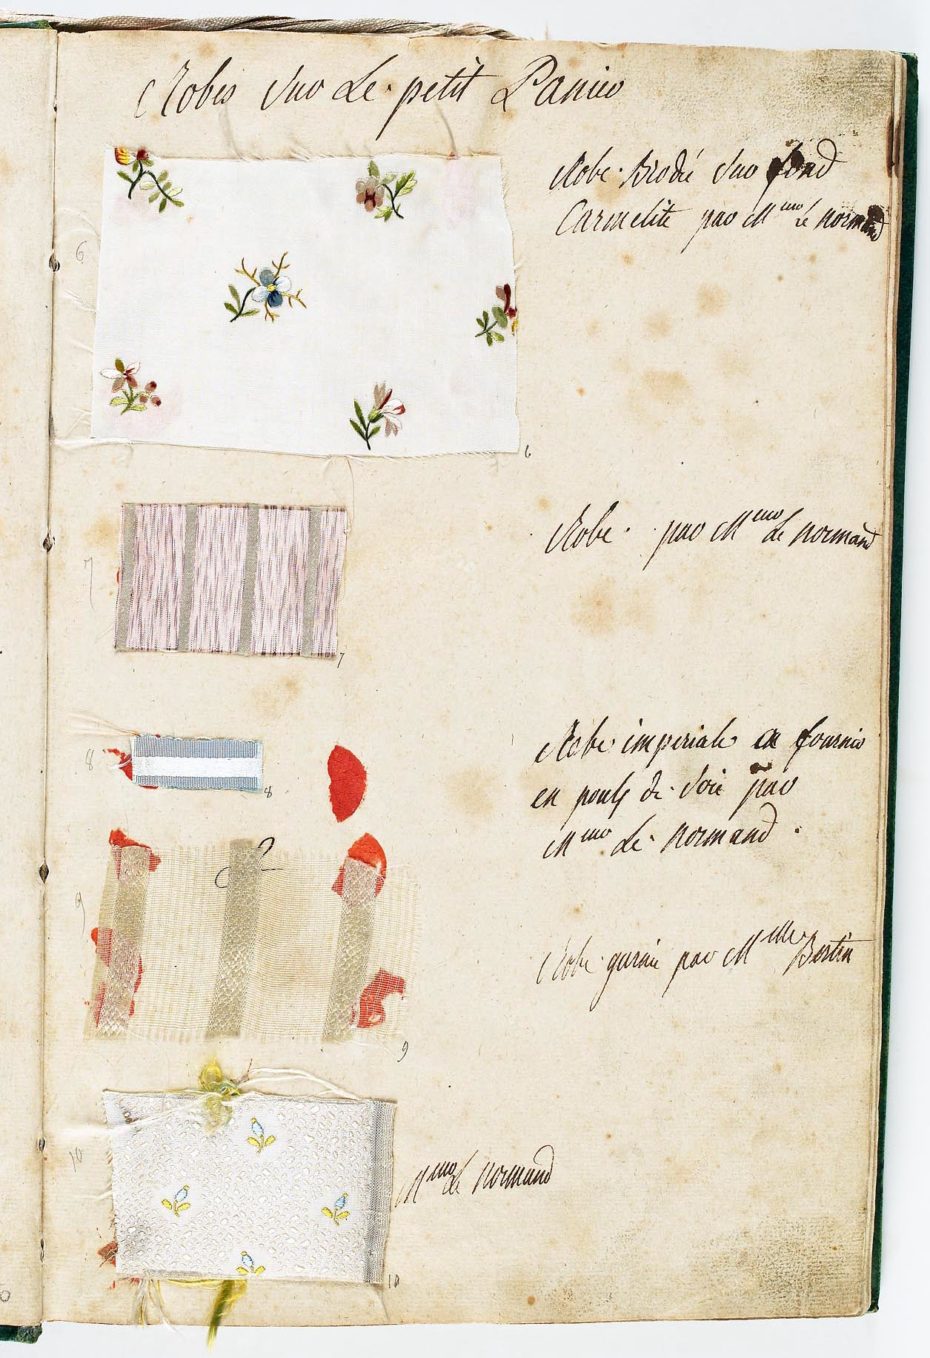 Robes Sur Le petit Panier
6
Robe Brodé Sur fond
Carmelite par M^me le normand
6
7
Robe par M^me Le normand
7
8
Robe imperiale
8
en de Soie par
M^me Le normand
9
Robe garnie par M^elle Bertin
9
10
M^me le normand
10